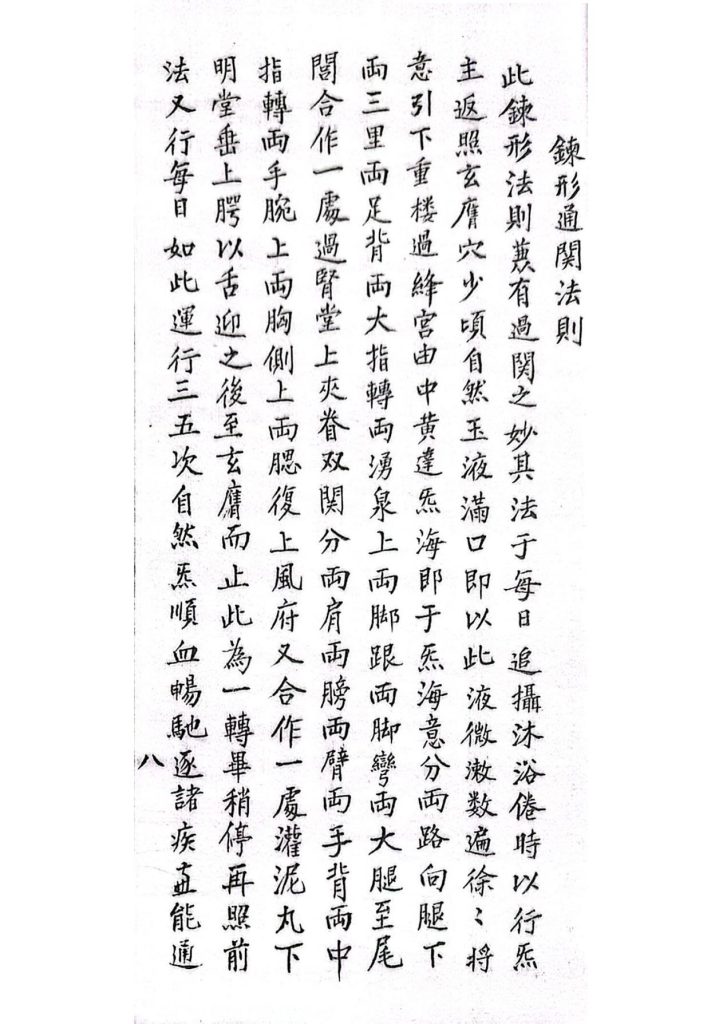 鍊形通関法則
此鍊形法則蒹有過関之妙其法于每日追攝沐浴倦時以行炁
主返照玄膺穴少頃自然玉液滿口即以此液微漱数遍徐〻将
意引下重楼過絳宮由中黄達炁海即于炁海意分両路向腿下
両三里両足背両大指轉両湧泉上両脚跟両脚彎両大腿至尾
閭合作一處過腎堂上夾脊双関分両肩両膀両臂両手背両中
指轉両手腕上両胸側上両腮復上風府又合作一處灌泥丸下
明堂垂上腭以舌迎之後至玄膺而止此為一轉畢稍停再照前
法又行每日如此運行三五次自然炁順血暢馳逐諸疾直能通
八